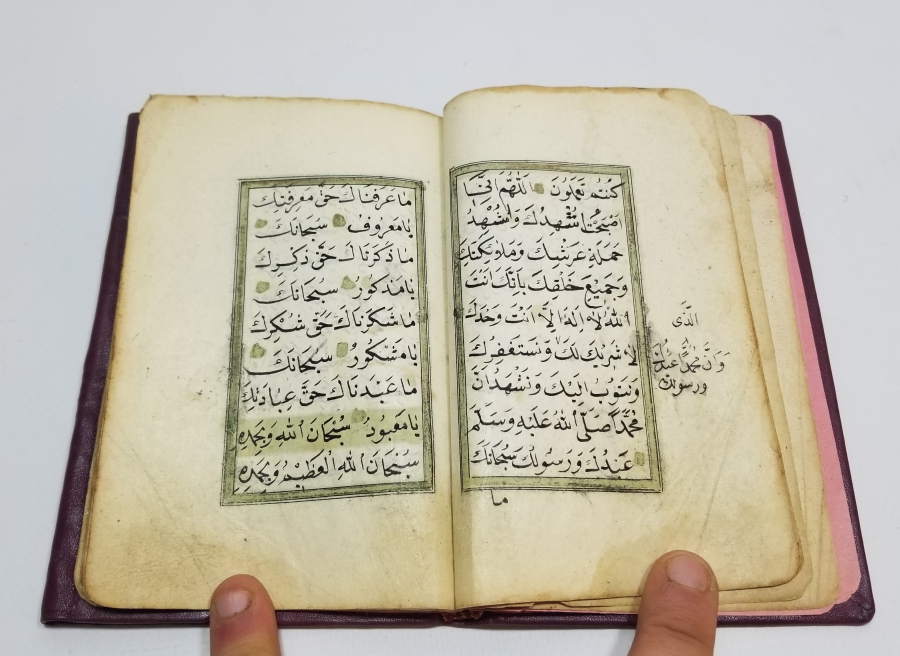 كنتم تعملون اللهم انى
اصبحت اشهدك واشهد
حملة عرشك وملائكتك
وجميع خلقك بانك انت
الله لا اله الا انت وحدك
لا شريك لك ونستغفرك
ونتوب اليك ونشهد ان
محمدا صلى الله عليه وسلم
عبدك ورسولك سبحانك
ما
الذى
وان محمدا عبدك
ورسولك
ما عرفناك حق معرفتك
يا معروف سبحانك
ما ذكرناك حق ذكرك
يا مذكور سبحانك
ما شكرناك حق شكرك
يا مشكور سبحانك
ما عبدناك حق عبادتك
يا معبود سبحان الله وبحمده
سبحان الله العظيم وبحمده